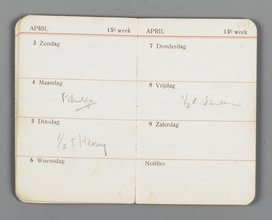 APRIL 15e week
3 Zondag
4 Maandag
5 Dinsdag
½ 5 Henny
6 Woensdag
APRIL 15e week
7 Donderdag
8 Vrijdag
½
9 Zaterdag
Notities